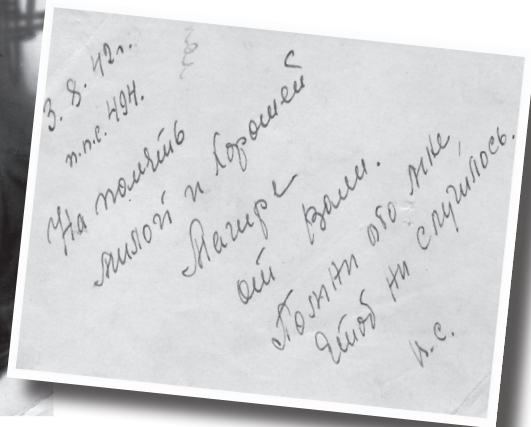 3. 8. 42 г.
п.п.с. 494.
На память
милой и хорошей
Магире
от Вали.
Помни обо мне
Чтоб ни случилось.
В.С.